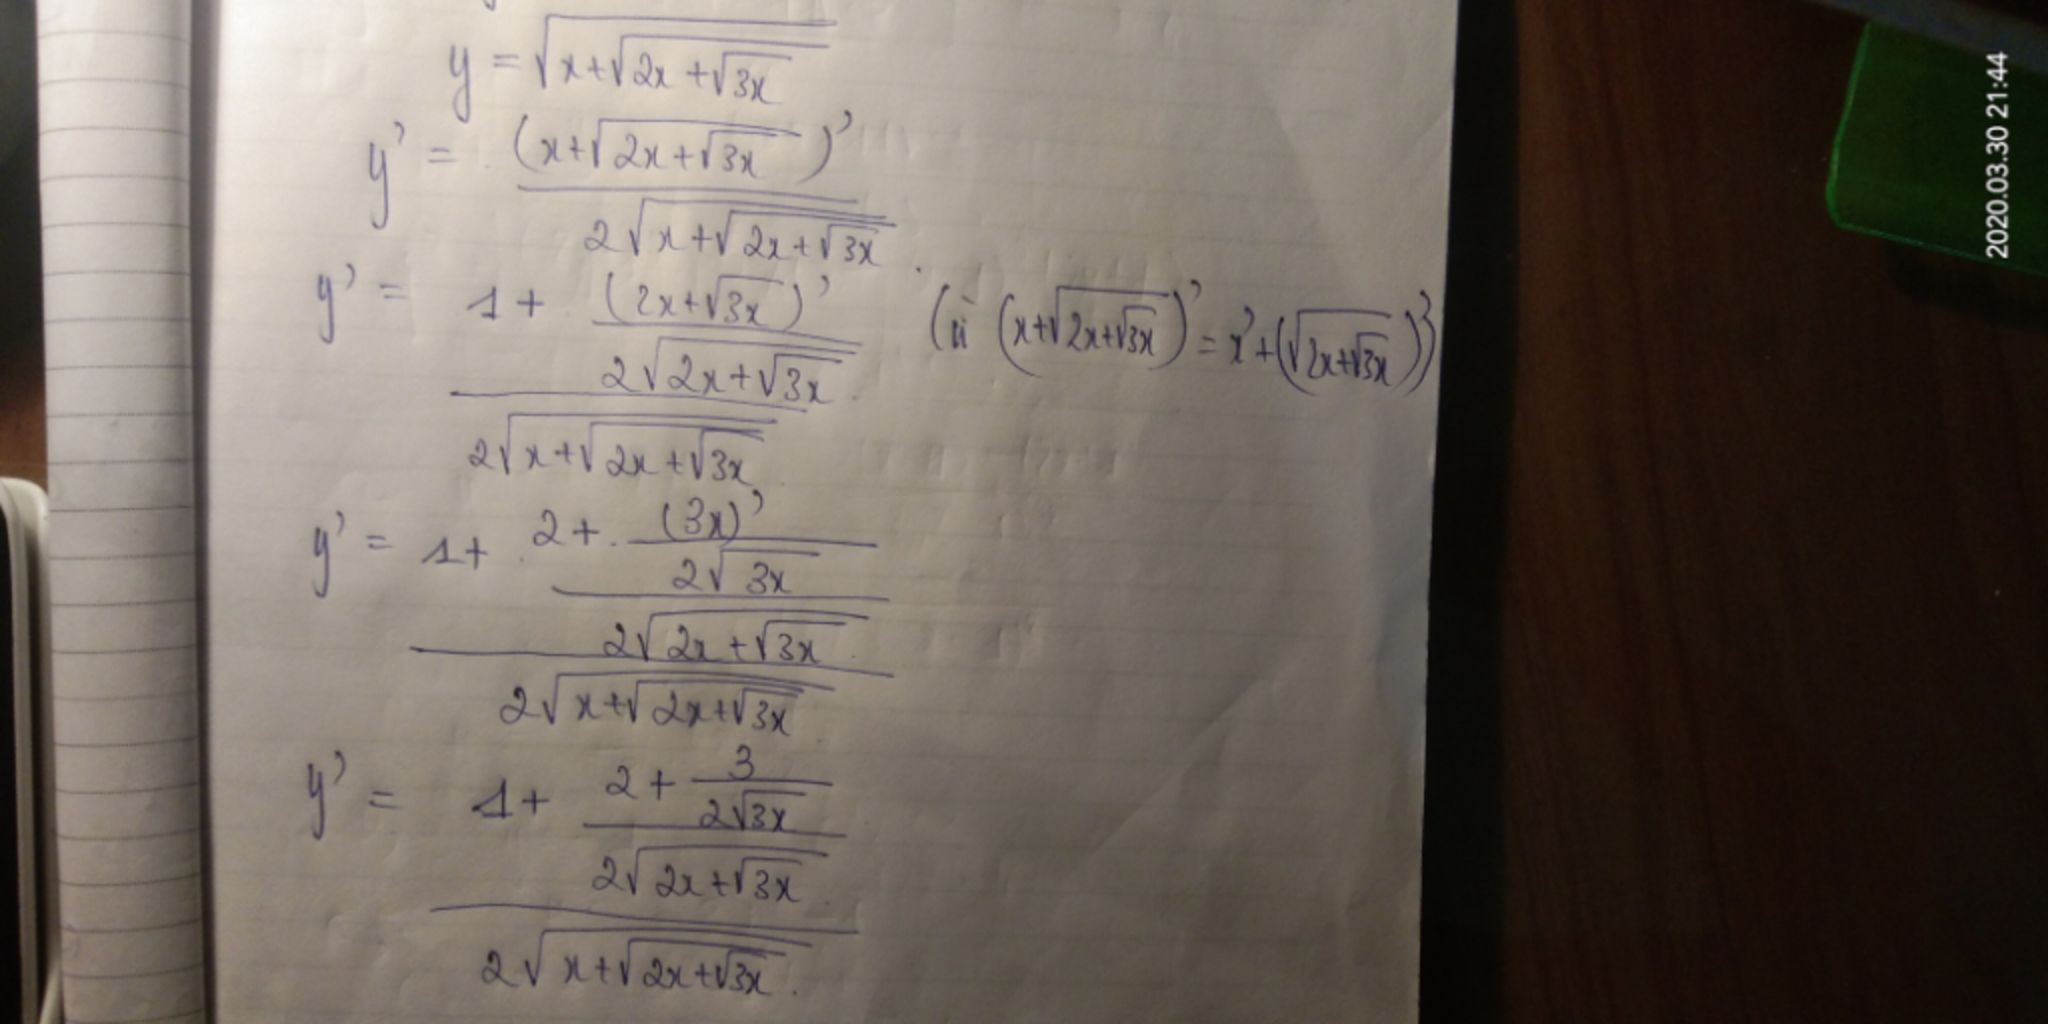 y = √(x+√(2x+√(3x)))
y' = (x+√(2x+√(3x)))' / 2√(x+√(2x+√(3x))).
y' = (1+ (2x+√(3x))' / 2√(2x+√(3x))) / 2√(x+√(2x+√(3x))) ( (x+√(2x+√(3x)))' = x'+(√(2x+√(3x)))')
y' = (1+ (2+ (3x)' / 2√(3x)) / 2√(2x+√(3x))) / 2√(x+√(2x+√(3x)))
y' = (1+ (2+ 3 / 2√(3x)) / 2√(2x+√(3x))) / 2√(x+√(2x+√(3x))).
2020.03.30 21:44